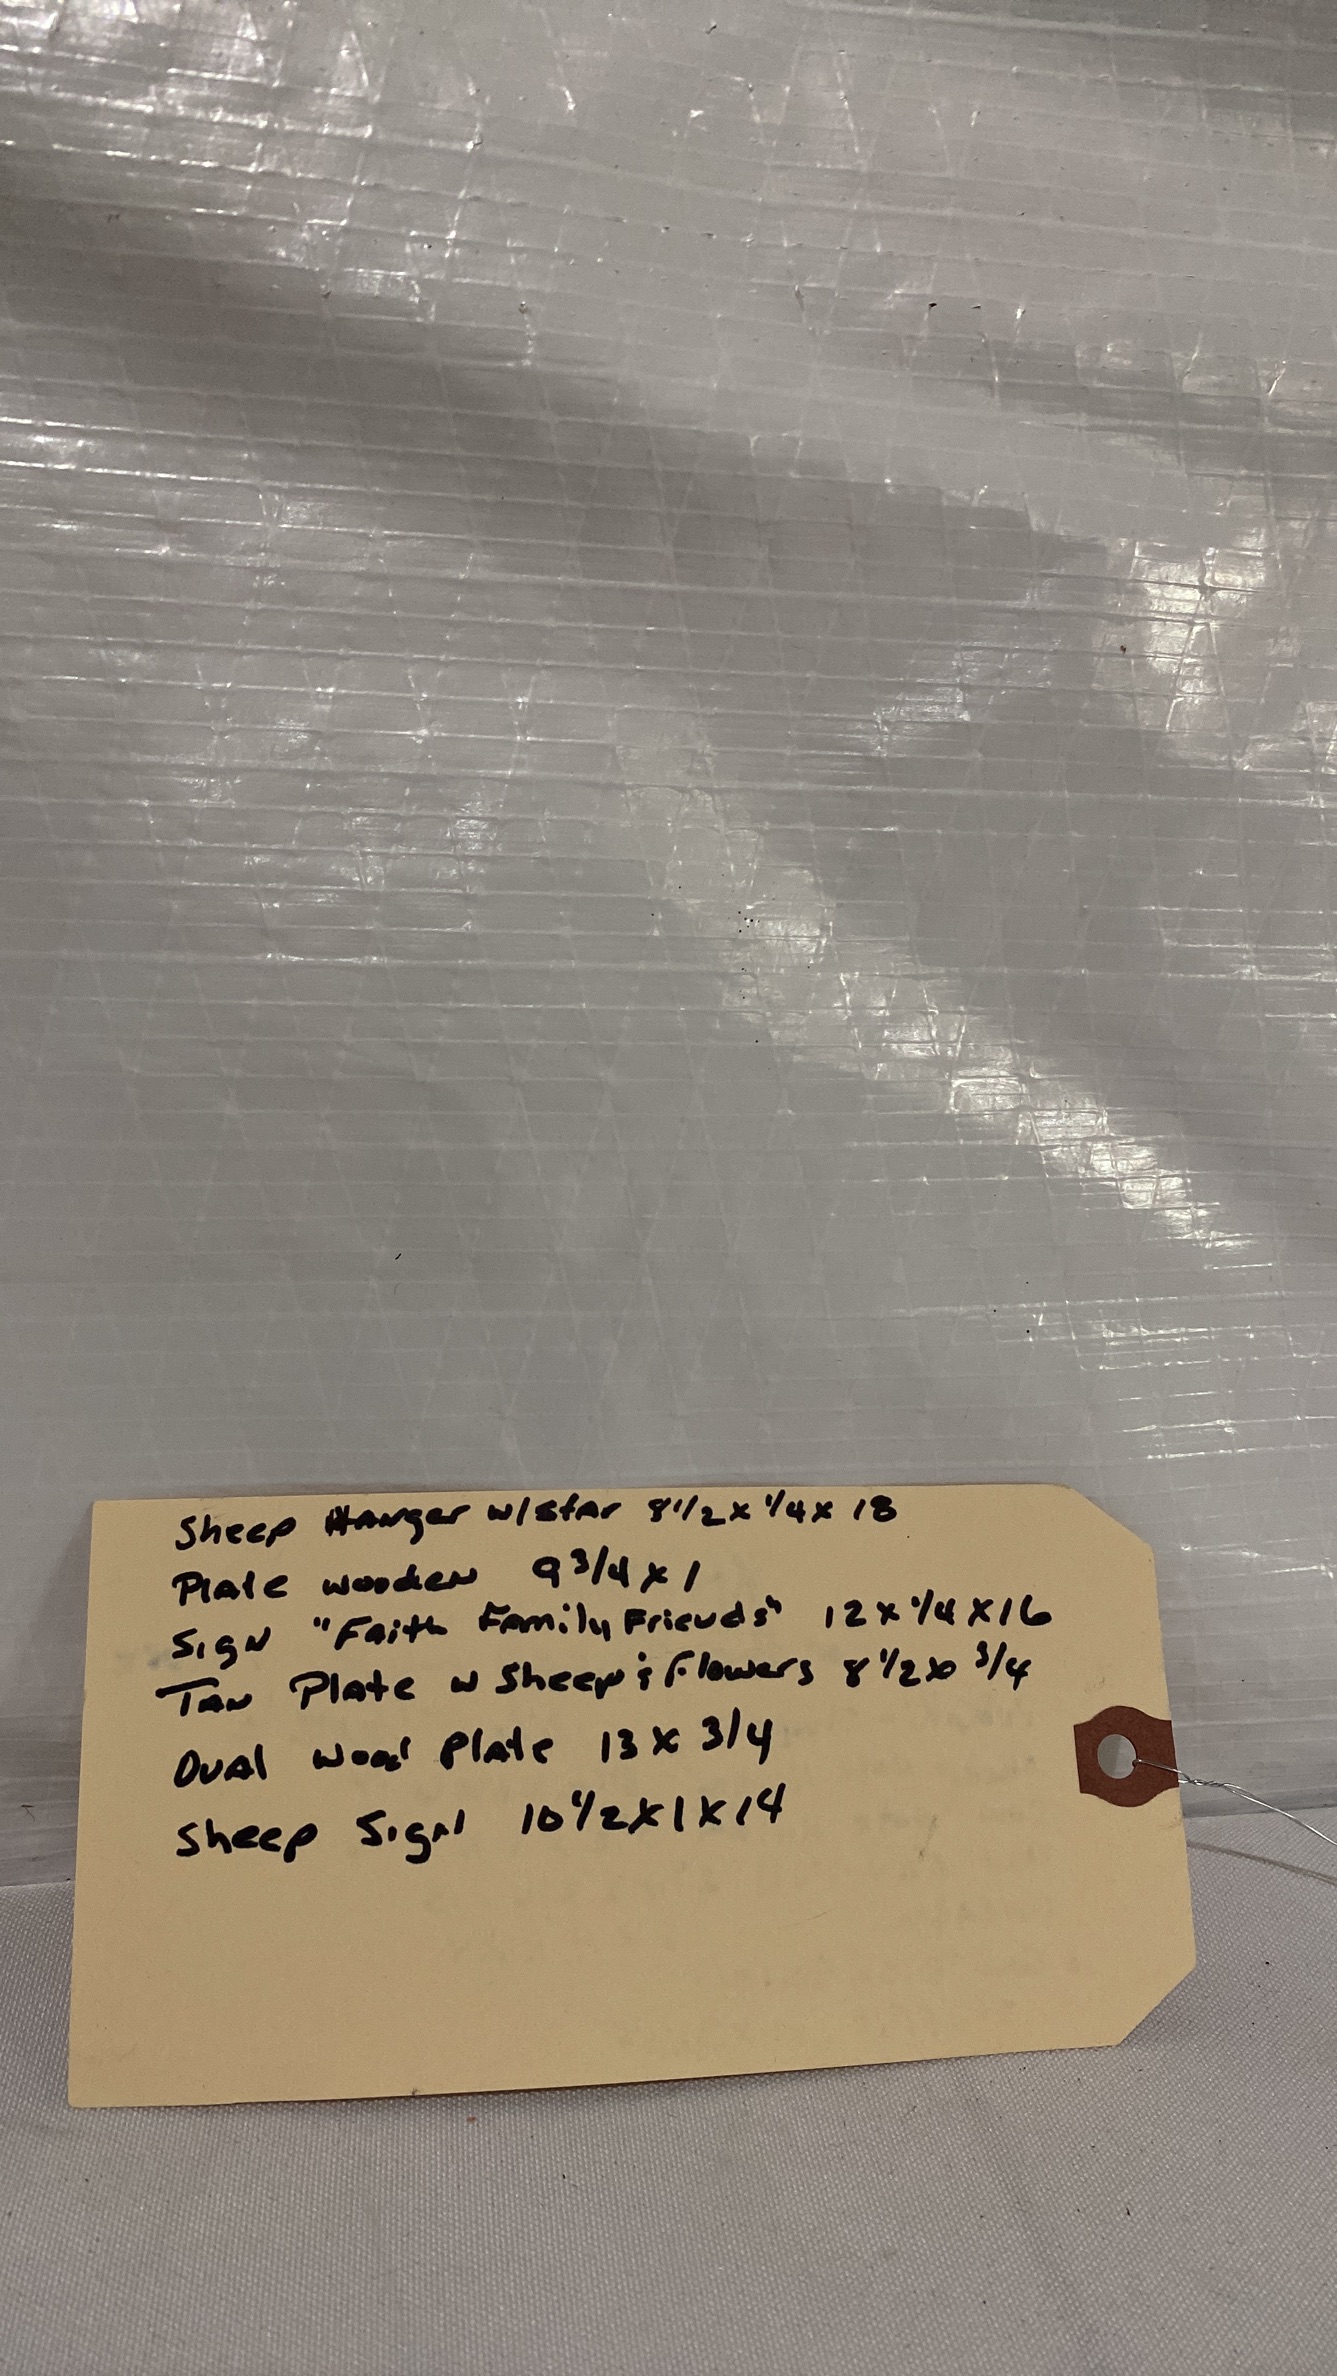 Sheep Hanger w/star 8 1/2 x 1/4 x 18
Plate wooden 9 3/4 x 1
Sign "Faith Family Friends" 12 x 1/4 x 16
Tan Plate w Sheep & Flowers 8 1/2 x 3/4
Oval wood Plate 13 x 3/4
Sheep Sign 10 1/2 x 1 x 14